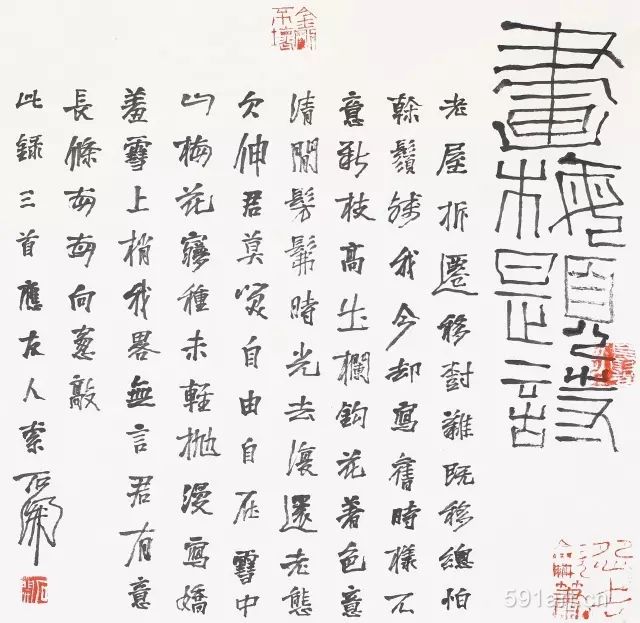 畫梅題詩
老屋拆遷移樹難既移總怕
榦鬚殘我今却寫舊時樣不
意新枝高出欄鈎花著色意
清閒髣髴時光去復還老態
欠伸君莫笑自由自在雪中
山梅花種未輕拋漫寫嬌
羞雪上梢我畧無言君有意
長條每每向窗敲
此錄三首應友人索 石開
金剛不壞